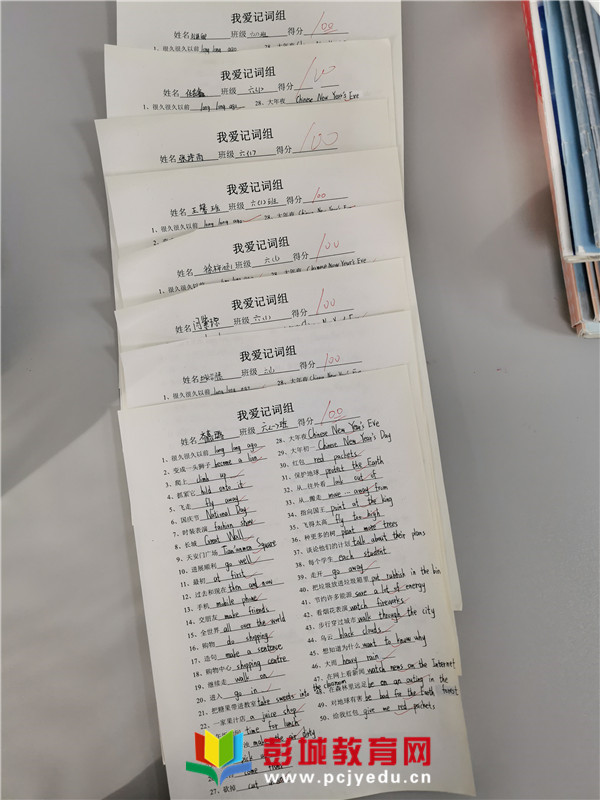 我爱记词组
姓名 班级 六(1)班 得分 100
1、很久很久以前 long long ago 28、大年夜
我爱记词组
姓名 班级 六(1) 得分 100
1、很久很久以前 long long ago 28、大年夜 Chinese New Year's Eve
我爱记词组
姓名 班级 得分 100
我爱记词组
姓名 班级 六(1)班 得分 100
1、很久很久以前 long long ago 28、大年夜
我爱记词组
姓名 班级 得分 100
1、很久很久以前 28、大年夜 Chinese New Year's Eve
我爱记词组
姓名 班级 六(1) 得分 100
我爱记词组
姓名 班级 得分 100
1、很久很久以前 long long ago 28、大年夜 Chinese New Year's Eve
我爱记词组
姓名 班级 得分 100
1、很久很久以前 long long ago 28、大年夜 Chinese New Year's Eve
2、变成一头狮子 become a lion 29、大年初一 Chinese New Year's Day
3、爬上 climb up 30、红包 red packets
4、抓紧它 hold onto it 31、保护地球 protect the Earth
5、飞走 fly away 32、从…往外看 look out of
6、国庆节 National Day 33、从…搬走 move … away from
7、时装表演 fashion show 34、指向国王 point at the king
8、长城 Great Wall 35、飞得太高 fly too high
9、天安门广场 Tian'anmen Square 36、种更多的树 plant more trees
10、进展顺利 go well 37、谈论他们的计划 talk about their plans
11、最初 at first 38、每个学生 each student
12、过去和现在 then and now 39、走开 go away
13、手机 mobile phone 40、把垃圾放进垃圾箱里 put rubbish in the bin
14、交朋友 make friends 41、节约许多能源 save a lot of energy
15、全世界 all over the world 42、看烟花表演 watch fireworks
16、购物 do shopping 43、步行穿过城市 walk through the city
17、造句 make a sentence 44、乌云 black clouds
18、购物中心 shopping centre 45、想知道为什么 want to know why
19、继续走 walk on 46、大雨 heavy rain
20、进入 go in 47、在网上看新闻 watch news on the Internet
21、把糖果带进教室 take sweets into the classroom 48、在森林里远足 be on an outing in the forest
22、一家果汁店 a juice shop 49、对地球有害 be bad for the Earth
time for lunch 50、给我红包 give me red packets
make the air dirty
27、砍掉 cut down
彭城教育网
www.pcjyedu.cn